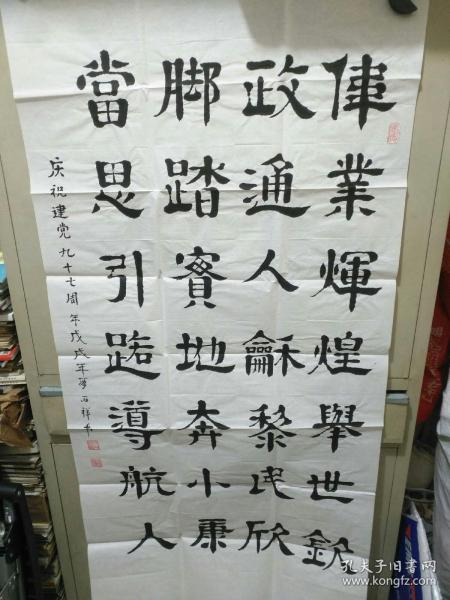 偉業煇煌舉世欽
政通人龢黎民欣
脚踏實地奔小康
當思引路導航人
庆祝建党九十七周年戊戌年
孔夫子旧书网
www.kongfz.com